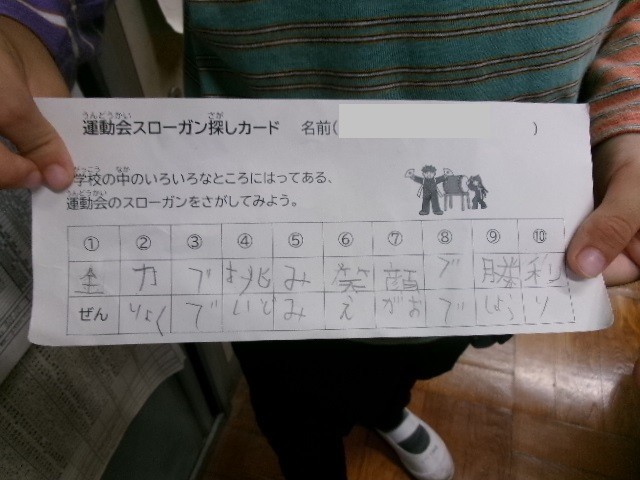 うんどうかい さが
運動会スローガン探しカード 名前( )
がっこう なか
学校の中のいろいろなところにはってある、
うんどうかい
運動会のスローガンをさがしてみよう。
① ② ③ ④ ⑤ ⑥ ⑦ ⑧ ⑨ ⑩
全 力 で 挑 み 笑 顔 で 勝 利
ぜん りょく で いど み え がお で しょう り